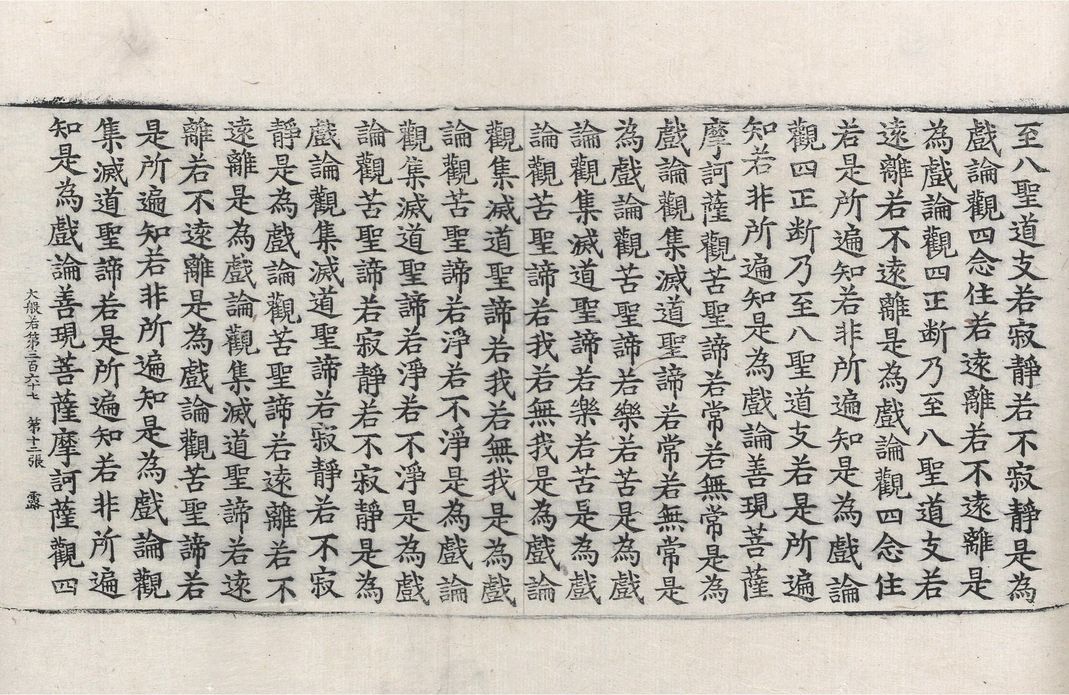 至八聖道支若寂靜若不寂靜是為
戲論觀四念住若遠離若不遠離是
為戲論觀四正断乃至八聖道支若
遠離若不遠離是為戲論觀四念住
若是所遍知若非所遍知是為戲論
觀四正断乃至八聖道支若是所遍
知若非所遍知是為戲論善現菩薩
摩訶薩觀苦聖諦若常若無常是為
戲論觀集滅道聖諦若常若無常是
為戲論觀苦聖諦若樂若苦是為戲
論觀集滅道聖諦若樂若苦是為戲
論觀苦聖諦若我若無我是為戲論
觀集滅道聖諦若我若無我是為戲
論觀苦聖諦若淨若不淨是為戲論
觀集滅道聖諦若淨若不淨是為戲
論觀苦聖諦若寂靜若不寂靜是為
戲論觀集滅道聖諦若寂靜若不寂
靜是為戲論觀苦聖諦若遠離若不
遠離是為戲論觀集滅道聖諦若遠
離若不遠離是為戲論觀苦聖諦若
是所遍知若非所遍知是為戲論觀
集滅道聖諦若是所遍知若非所遍
知是為戲論善現菩薩摩訶薩觀四
大般若第三百六十七 第十二張 露